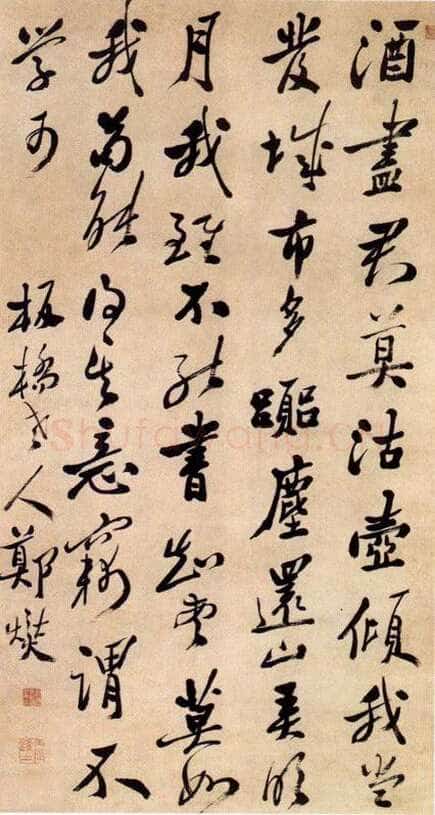 酒盡君莫沽壺傾我當
發城市多囂塵還山弄明
月我雖不能書知書莫如
我苟能得其意竊謂不
學可
板橋老人鄭燮